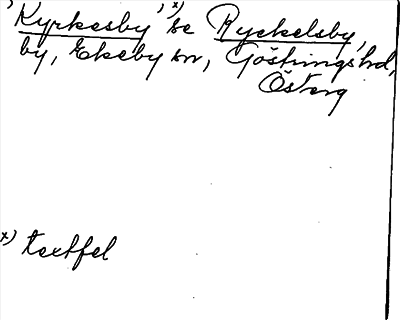 Kyrkesby, x) se Ryckelsby,
by, Ekeby sn, Göstringshd,
Österg
x) textfel